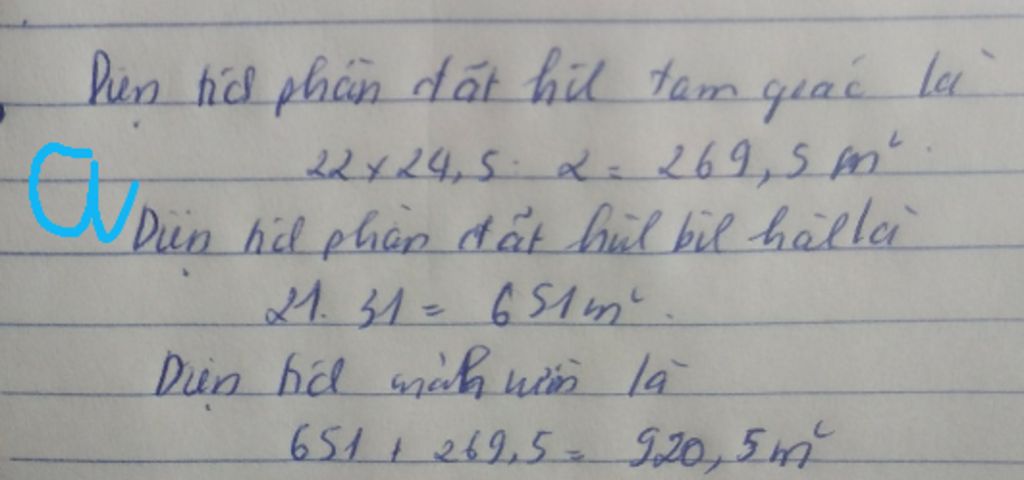 Diện tích phần đất hình tam giác là
22 x 24,5 : 2 = 269,5 m²
a
Diện tích phần đất hình bình hành là
21 . 31 = 651 m².
Diện tích mảnh vườn là
651 + 269,5 = 920,5 m²